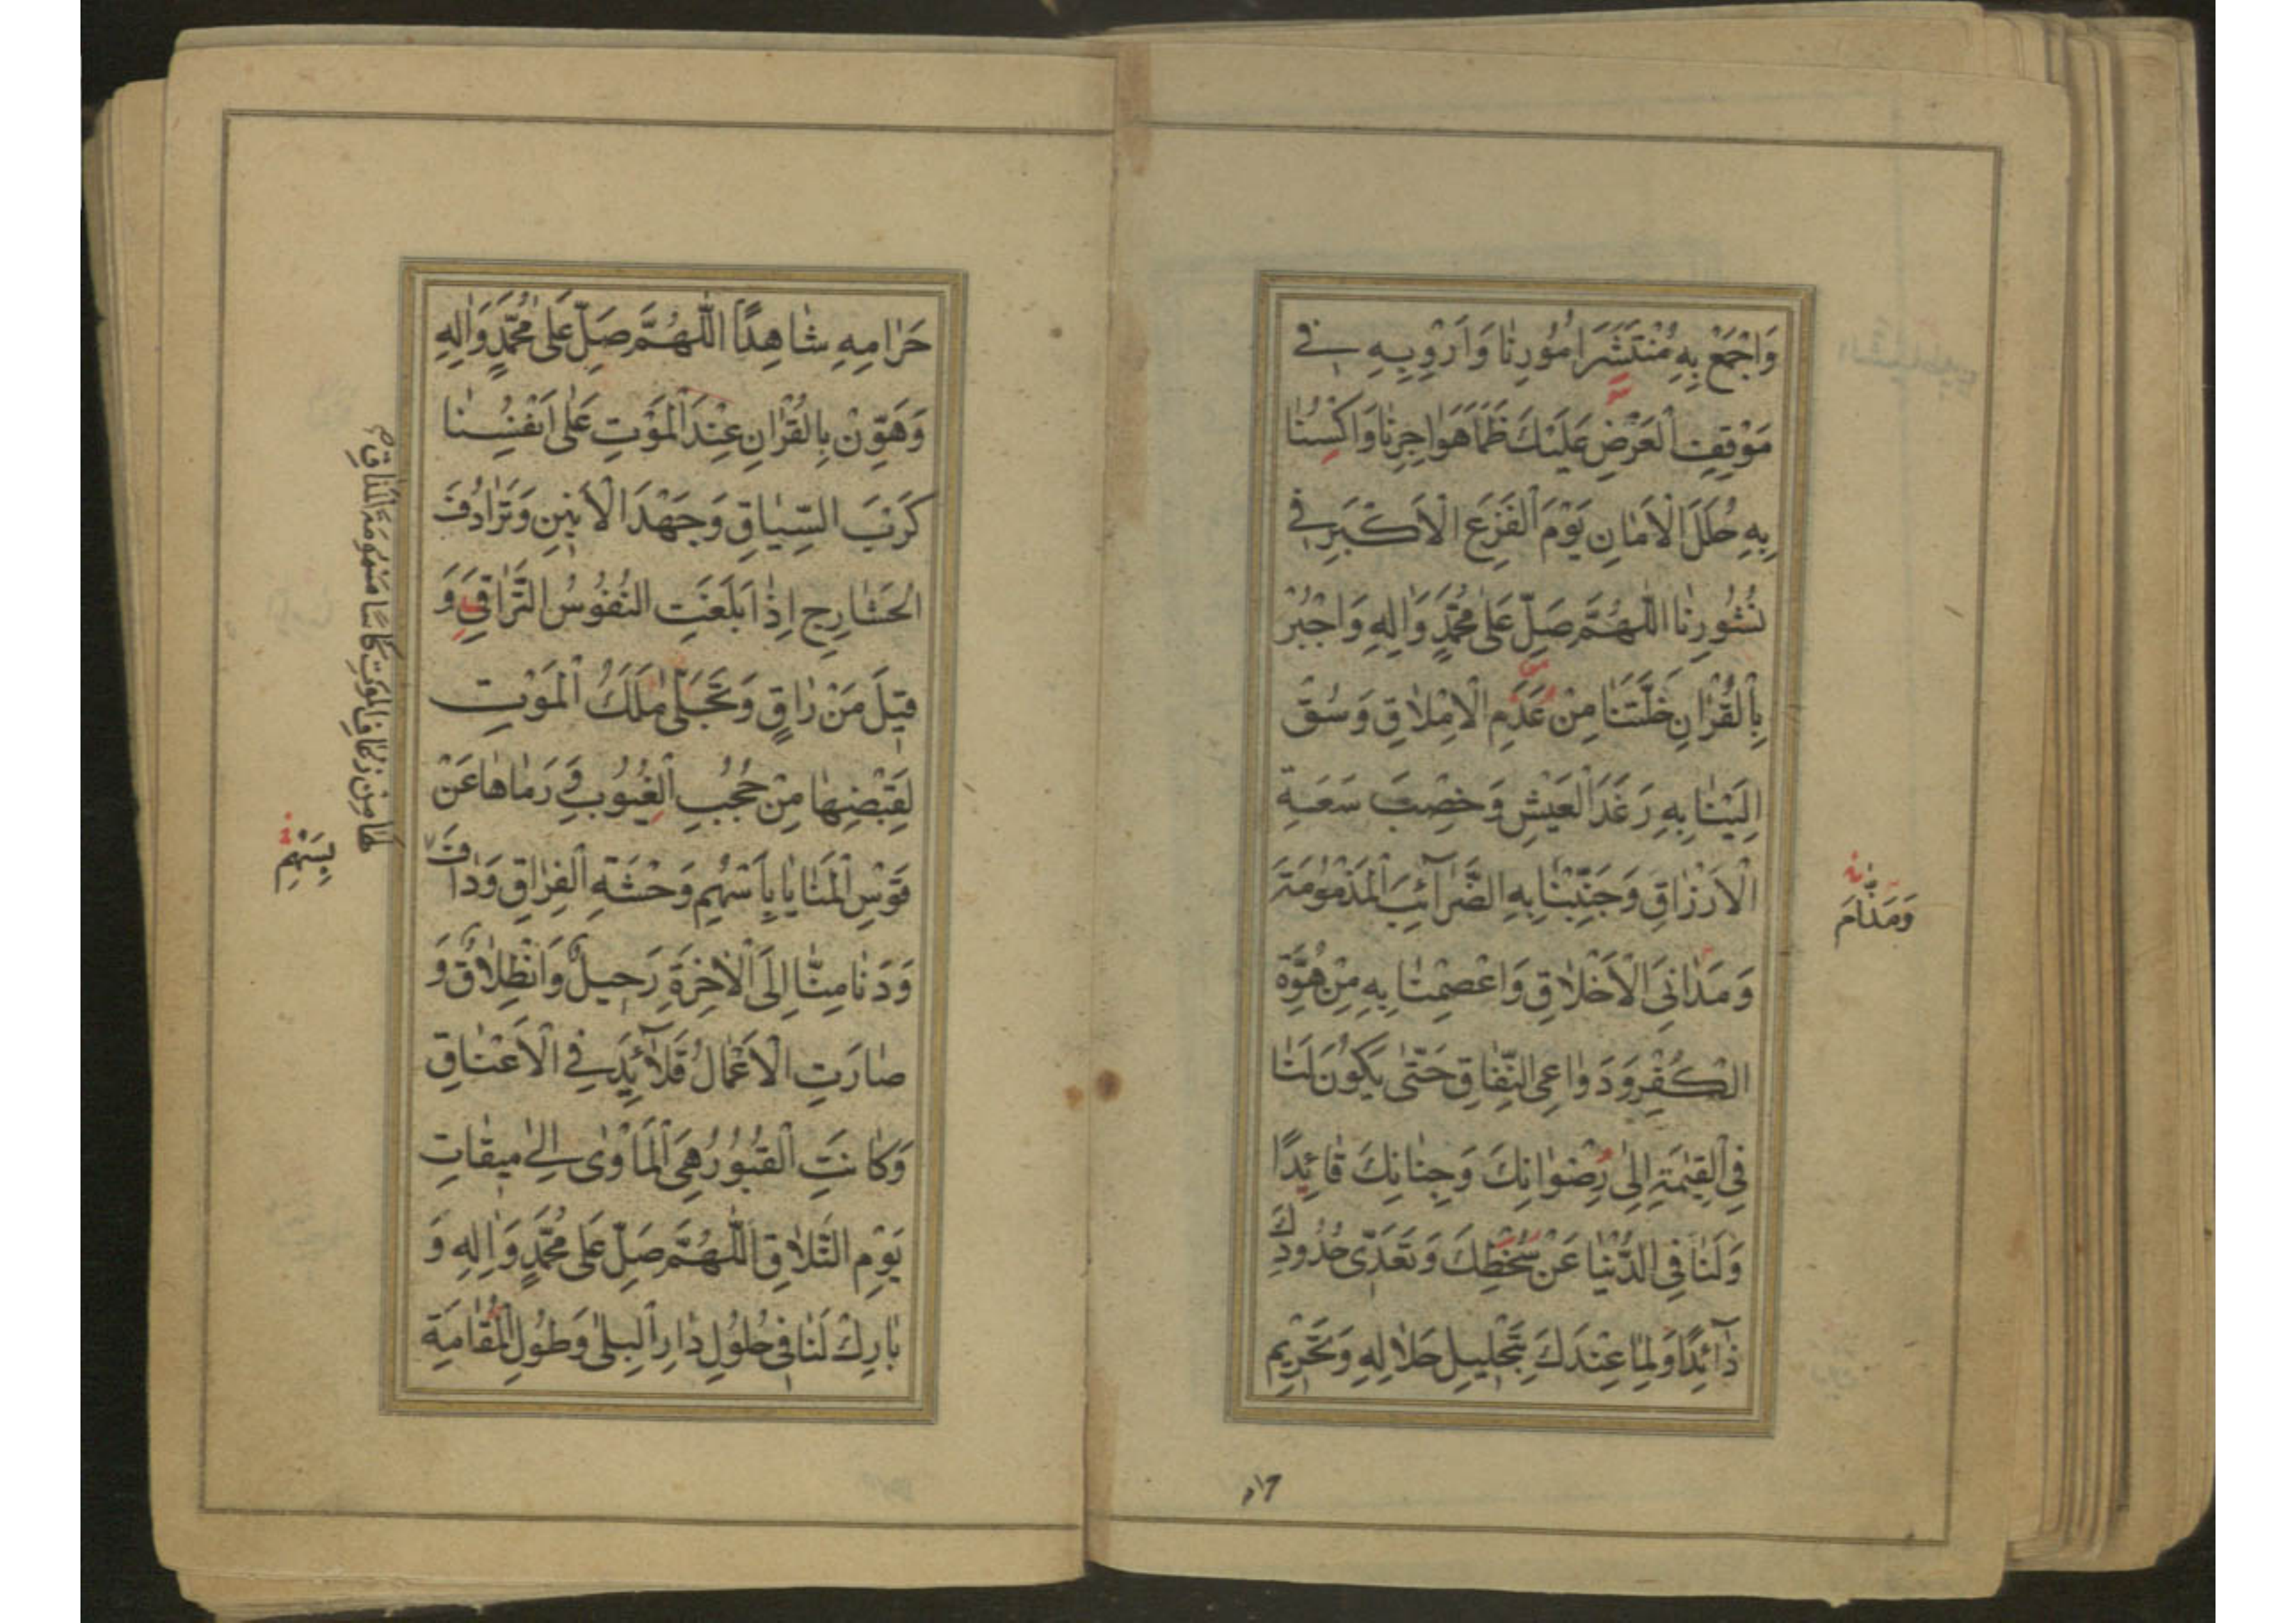 وَاجْمَعْ بِهِ مُنْتَشَرَ اُمُورِنٰا وَاَرْوِبِهِ فِي
مَوْقِفِ الْعَرْضِ عَلَيْكَ ظَمَأَ هَوٰاجِرِنٰا وَاكْسُنٰا
بِهِ حُلَلَ الْاَمٰانِ يَوْمَ الْفَزَعِ الْاَكْبَرِ فِي
نُشُورِنٰا اَللّٰهُمَّ صَلِّ عَلىٰ مُحَمَّدٍ وَاٰلِهِ وَاجْبُرْ
بِالْقُرْاٰنِ خَلَّتَنٰا مِنْ عَدَمِ الْاِمْلٰاقِ وَسُقْ
اِلَيْنٰا بِهِ رَغَدَ الْعَيْشِ وَخِصْبَ سَعَةِ
الْاَرْزٰاقِ وَجَنِّبْنٰا بِهِ الضَّرٰآئِبَ الْمَذْمُومَةَ
وَمَدٰانِىَ الْاَخْلٰاقِ وَاعْصِمْنٰا بِهِ مِنْ هُوَّةِ
الْكُفْرِ وَدَوٰاعِى النِّفٰاقِ حَتّٰى يَكُونَ لَنٰا
فِى الْقِيٰمَةِ اِلىٰ رِضْوٰانِكَ وَجِنٰانِكَ قٰائِدًا
وَلَنٰا فِى الدُّنْيٰا عَنْ سُخْطِكَ وَتَعَدّٖى حُدُودِكَ
ذٰآئِدًا وَلِمٰا عِنْدَكَ بِتَحْلٖيلِ حَلٰالِهِ وَتَحْرٖيمِ
وَمَذٰامَّ
حَرٰامِهِ شٰاهِدًا اَللّٰهُمَّ صَلِّ عَلىٰ مُحَمَّدٍ وَاٰلِهِ
وَهَوِّنْ بِالْقُرْاٰنِ عِنْدَ الْمَوْتِ عَلىٰ اَنْفُسِنٰا
كَرْبَ السِّيٰاقِ وَجَهْدَ الْاَنٖينِ وَتَرٰادُفَ
الْحَشٰارِجِ اِذٰا بَلَغَتِ النُّفُوسُ التَّرٰاقِيَ وَ
قٖيلَ مَنْ رٰاقٍ وَتَجَلّٰى مَلَكُ الْمَوْتِ
لِقَبْضِهٰا مِنْ حُجُبِ الْغُيُوبِ وَرَمٰاهٰا عَنْ
قَوْسِ الْمَنٰايٰا بِاَسْهُمِ وَحْشَةِ الْفِرٰاقِ وَدٰافَ
وَدَنٰا مِنّٰا اِلَى الْاٰخِرَةِ رَحٖيلٌ وَانْطِلٰاقٌ وَ
صٰارَتِ الْاَعْمٰالُ قَلٰآئِدَ فِى الْاَعْنٰاقِ
وَكٰانَتِ الْقُبُورُ هِىَ الْمَأْوٰى اِلىٰ مٖيقٰاتِ
يَوْمِ التَّلٰاقِ اَللّٰهُمَّ صَلِّ عَلىٰ مُحَمَّدٍ وَاٰلِهِ وَ
بٰارِكْ لَنٰا فٖى حُلُولِ دٰارِ الْبِلىٰ وَطُولِ الْمُقٰامَةِ
لَهٰا مِنْ ذُعٰافِ الْمَوْتِ كَأْسًا مَسْمُومَةَ الْمَذٰاقِ
بِسَهْمِ